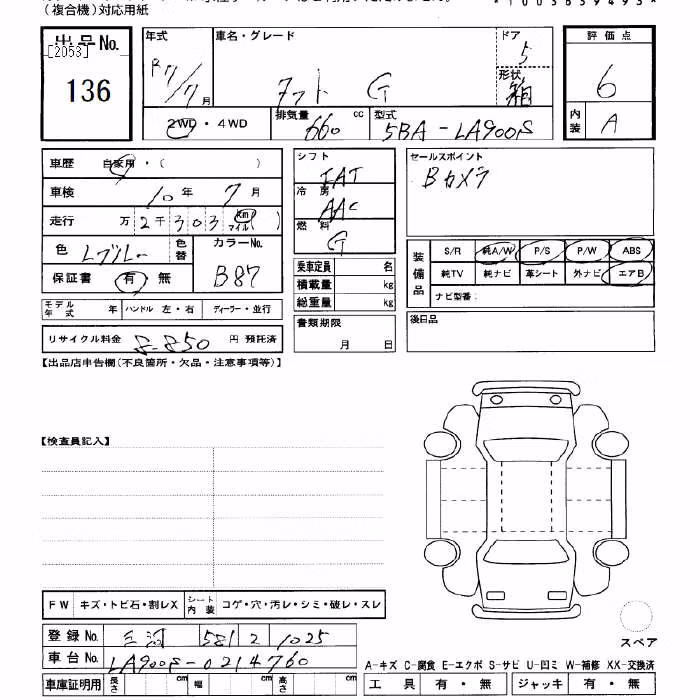 （複合機）対応用紙
*10036394​93*
出品No.
[2053]
136
年式
R7/7月
車名・グレード
タフト G
ドア
5
形状
箱
評価点
6
内装
A
2WD・4WD
排気量
660 cc
型式
5BA-LA900S
車歴 自家用・( )
車検 10年7月
走行 万2千303 Km マイル
色 Lブルー
色替
カラーNo.
B87
保証書 有 無
モデル年式 年
ハンドル 左・右
ディーラー・並行
リサイクル料金 8,850 円 預託済
シフト
IAT
冷房
AAC
燃料
G
乗車定員 名
積載量 kg
総重量 kg
書類期限
月 日
セールスポイント
Bカメラ
装備品
S/R 純A/W P/S P/W ABS
純TV 純ナビ 革シート 外ナビ エアB
ナビ型番：
後日品
【出品店申告欄(不良箇所・欠品・注意事項等)】
【検査員記入】
FW キズ・トビ石・割レX
シート内装 コゲ・穴・汚レ・シミ・破レ・スレ
登録No. 三河 581 2 1025
車台No. LA900S-0214760
車庫証明用 長さ cm 幅 cm 高さ cm
スペア
A-キズ C-腐食 E-エクボ S-サビ U-凹ミ W-補修 XX-交換済
工具 有・無 ジャッキ 有・無